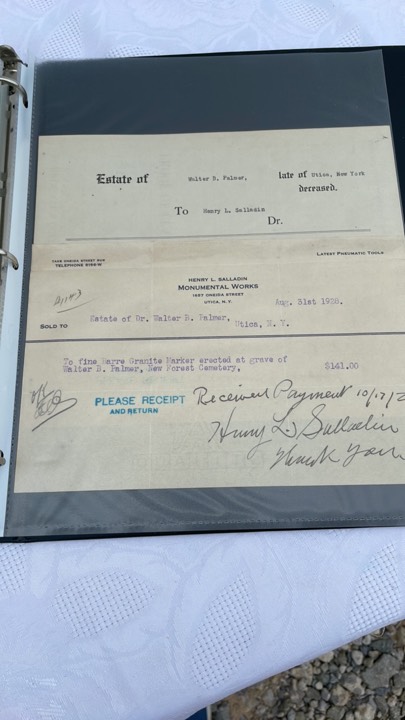 Estate of Walter B. Palmer, late of Utica, New York
deceased.
To Henry L. Salladin
Dr.
TAKE ONEIDA STREET CAR
TELEPHONE
LATEST PNEUMATIC TOOLS
HENRY L. SALLADIN
MONUMENTAL WORKS
1637 ONEIDA STREET
UTICA, N. Y.
Aug. 31st 1928.
SOLD TO Estate of Dr. Walter B. Palmer,
Utica, N. Y.
To fine Barre Granite Marker erected at grave of
Walter B. Palmer, New Forest Cemetery, $141.00
PLEASE RECEIPT
AND RETURN
Received Payment 10/17/2
Henry L. Salladin
Thank You